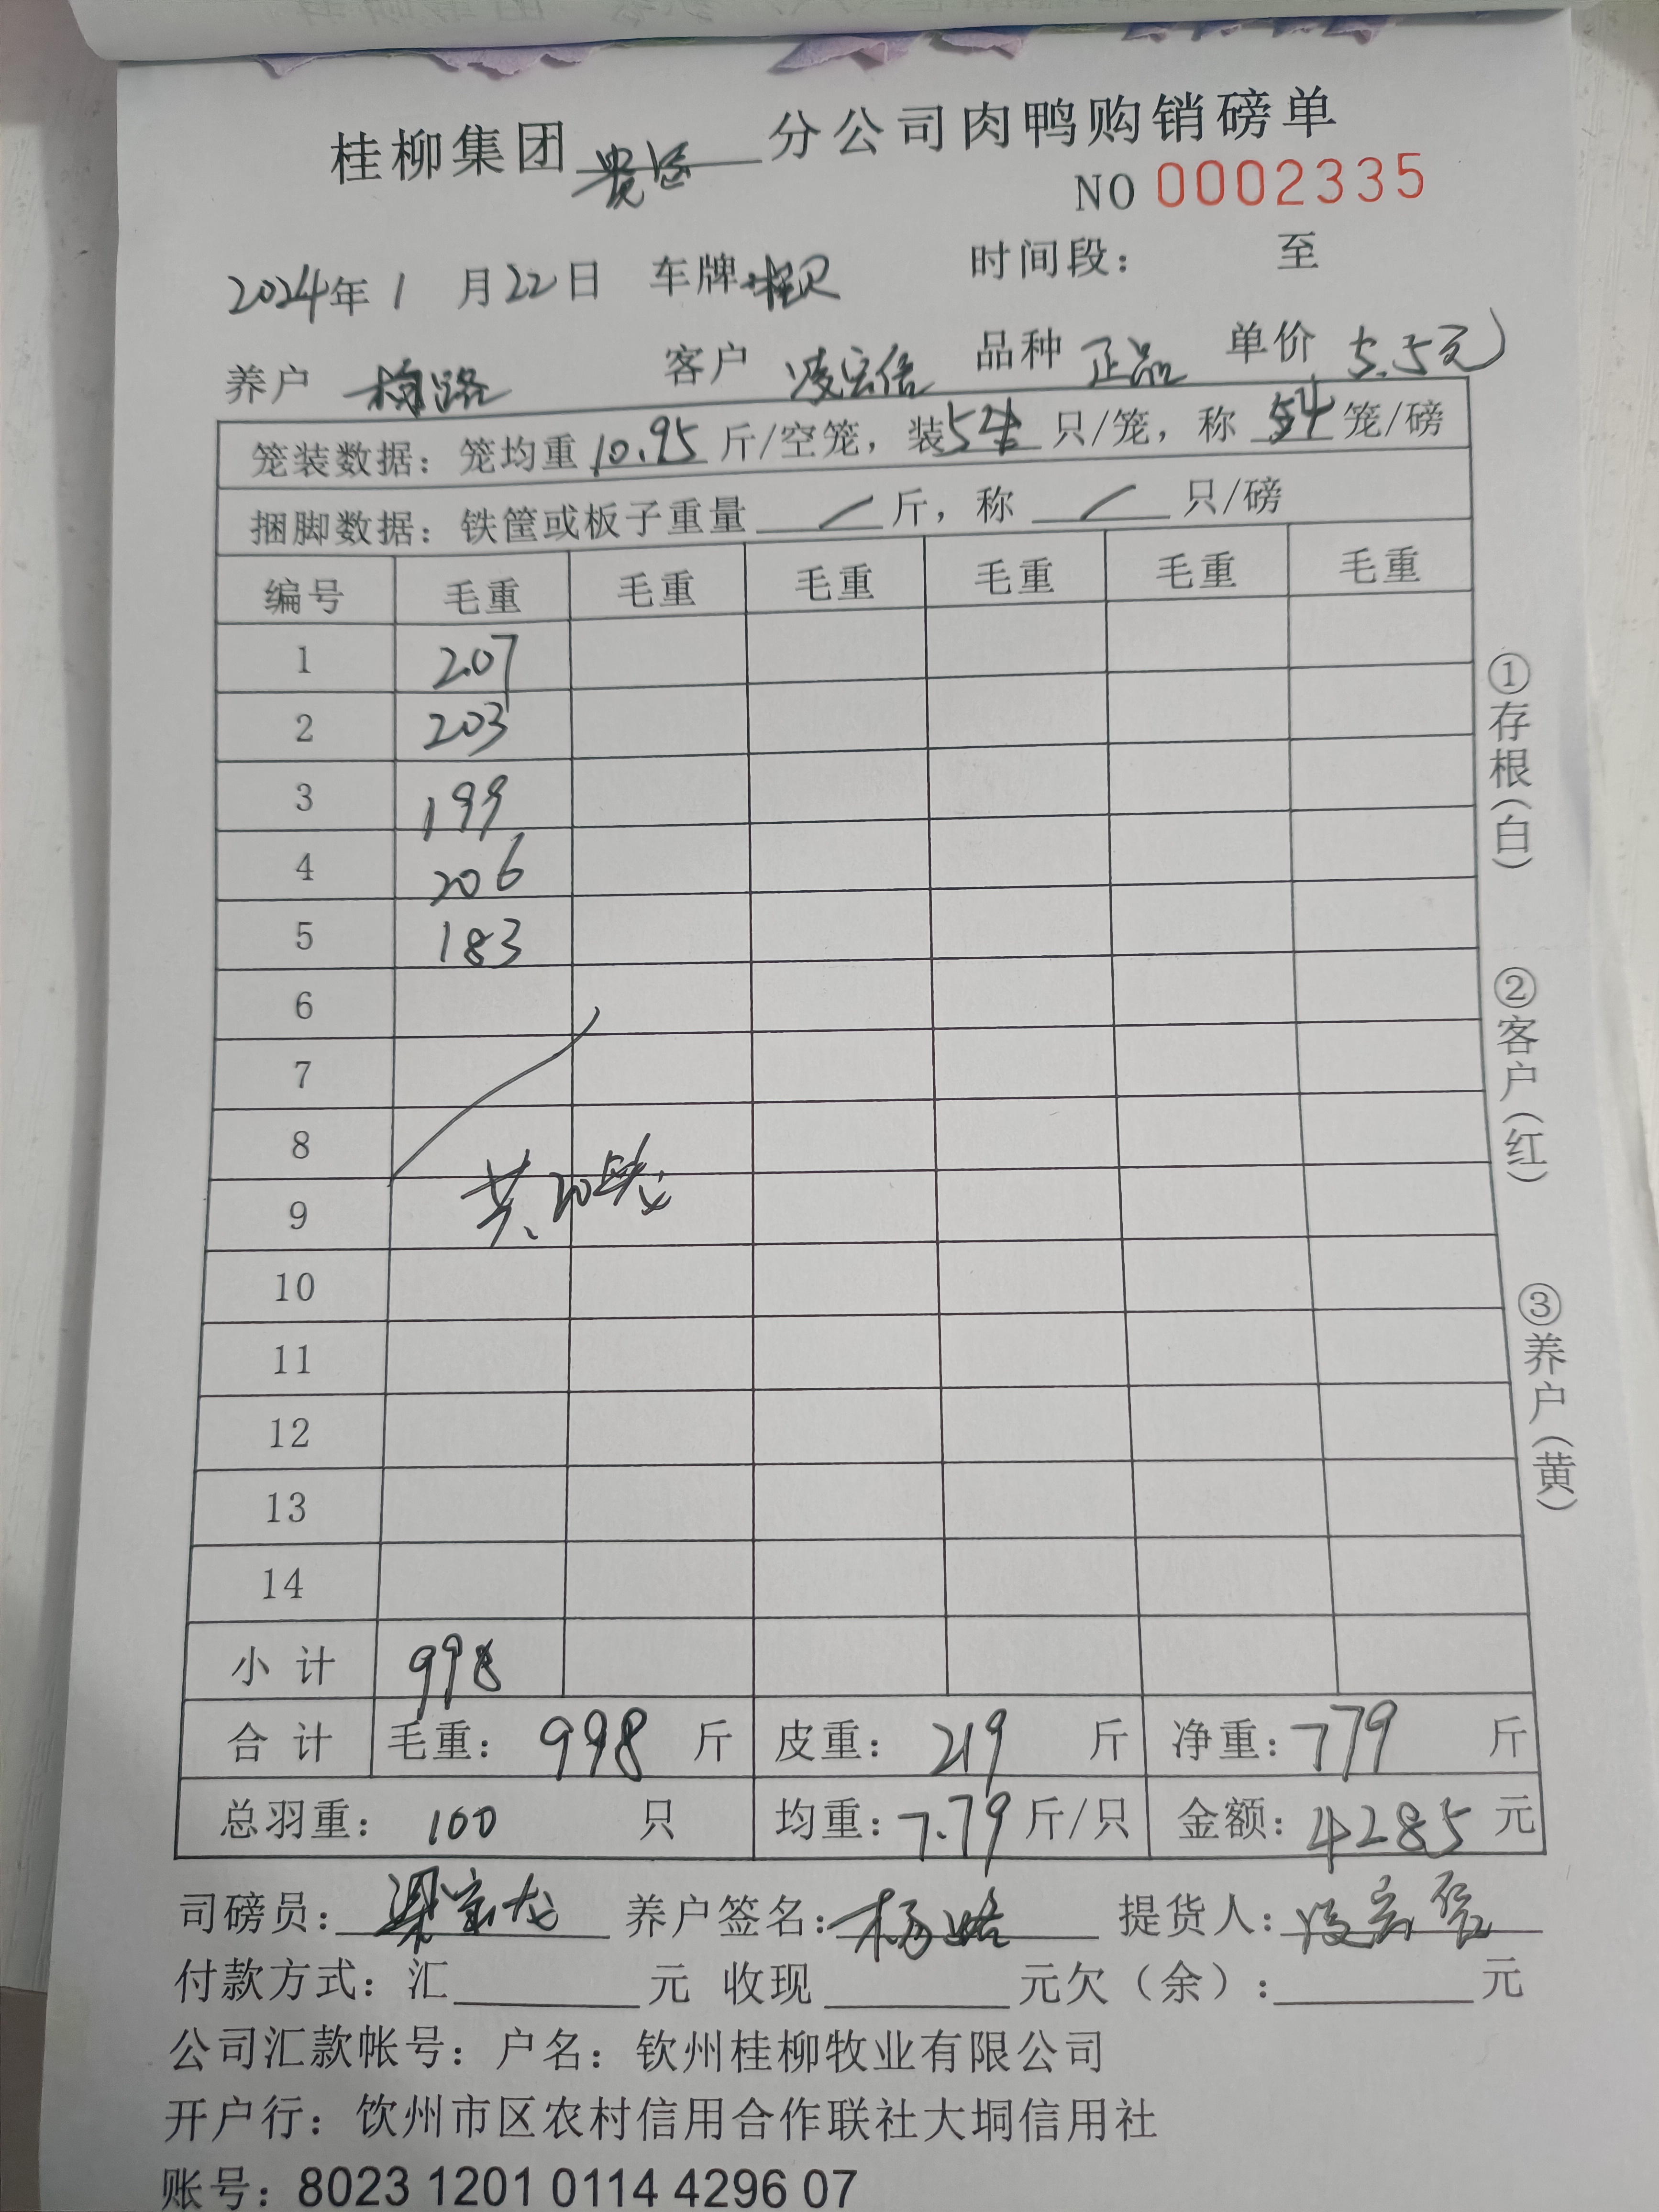 桂柳集团 贵运 分公司肉鸭购销磅单
NO 0002335
2024年 1 月 22 日 车牌 时间段: 至
养户 杨路 客户 凌宏信 品种 正品 单价 5.5元
笼装数据: 笼均重 10.95 斤/空笼, 装 5 只/笼, 称 笼/磅
捆脚数据: 铁筐或板子重量 / 斤, 称 / 只/磅
编号 毛重 毛重 毛重 毛重 毛重 毛重
1 207
2 203
3 199
4 206
5 183
6
7
8
9 共20
10
11
12
13
14
小 计 998
合 计 毛重: 998 斤 皮重: 219 斤 净重: 779 斤
总羽重: 100 只 均重: 7.79 斤/只 金额: 4285 元
司磅员: 梁宗龙 养户签名: 杨路 提货人: 凌宏信
付款方式: 汇 元 收现 元欠(余): 元
公司汇款帐号: 户名: 钦州桂柳牧业有限公司
开户行: 钦州市区农村信用合作联社大垌信用社
账号: 8023 1201 0114 4296 07
①存根(白)
②客户(红)
③养户(黄)